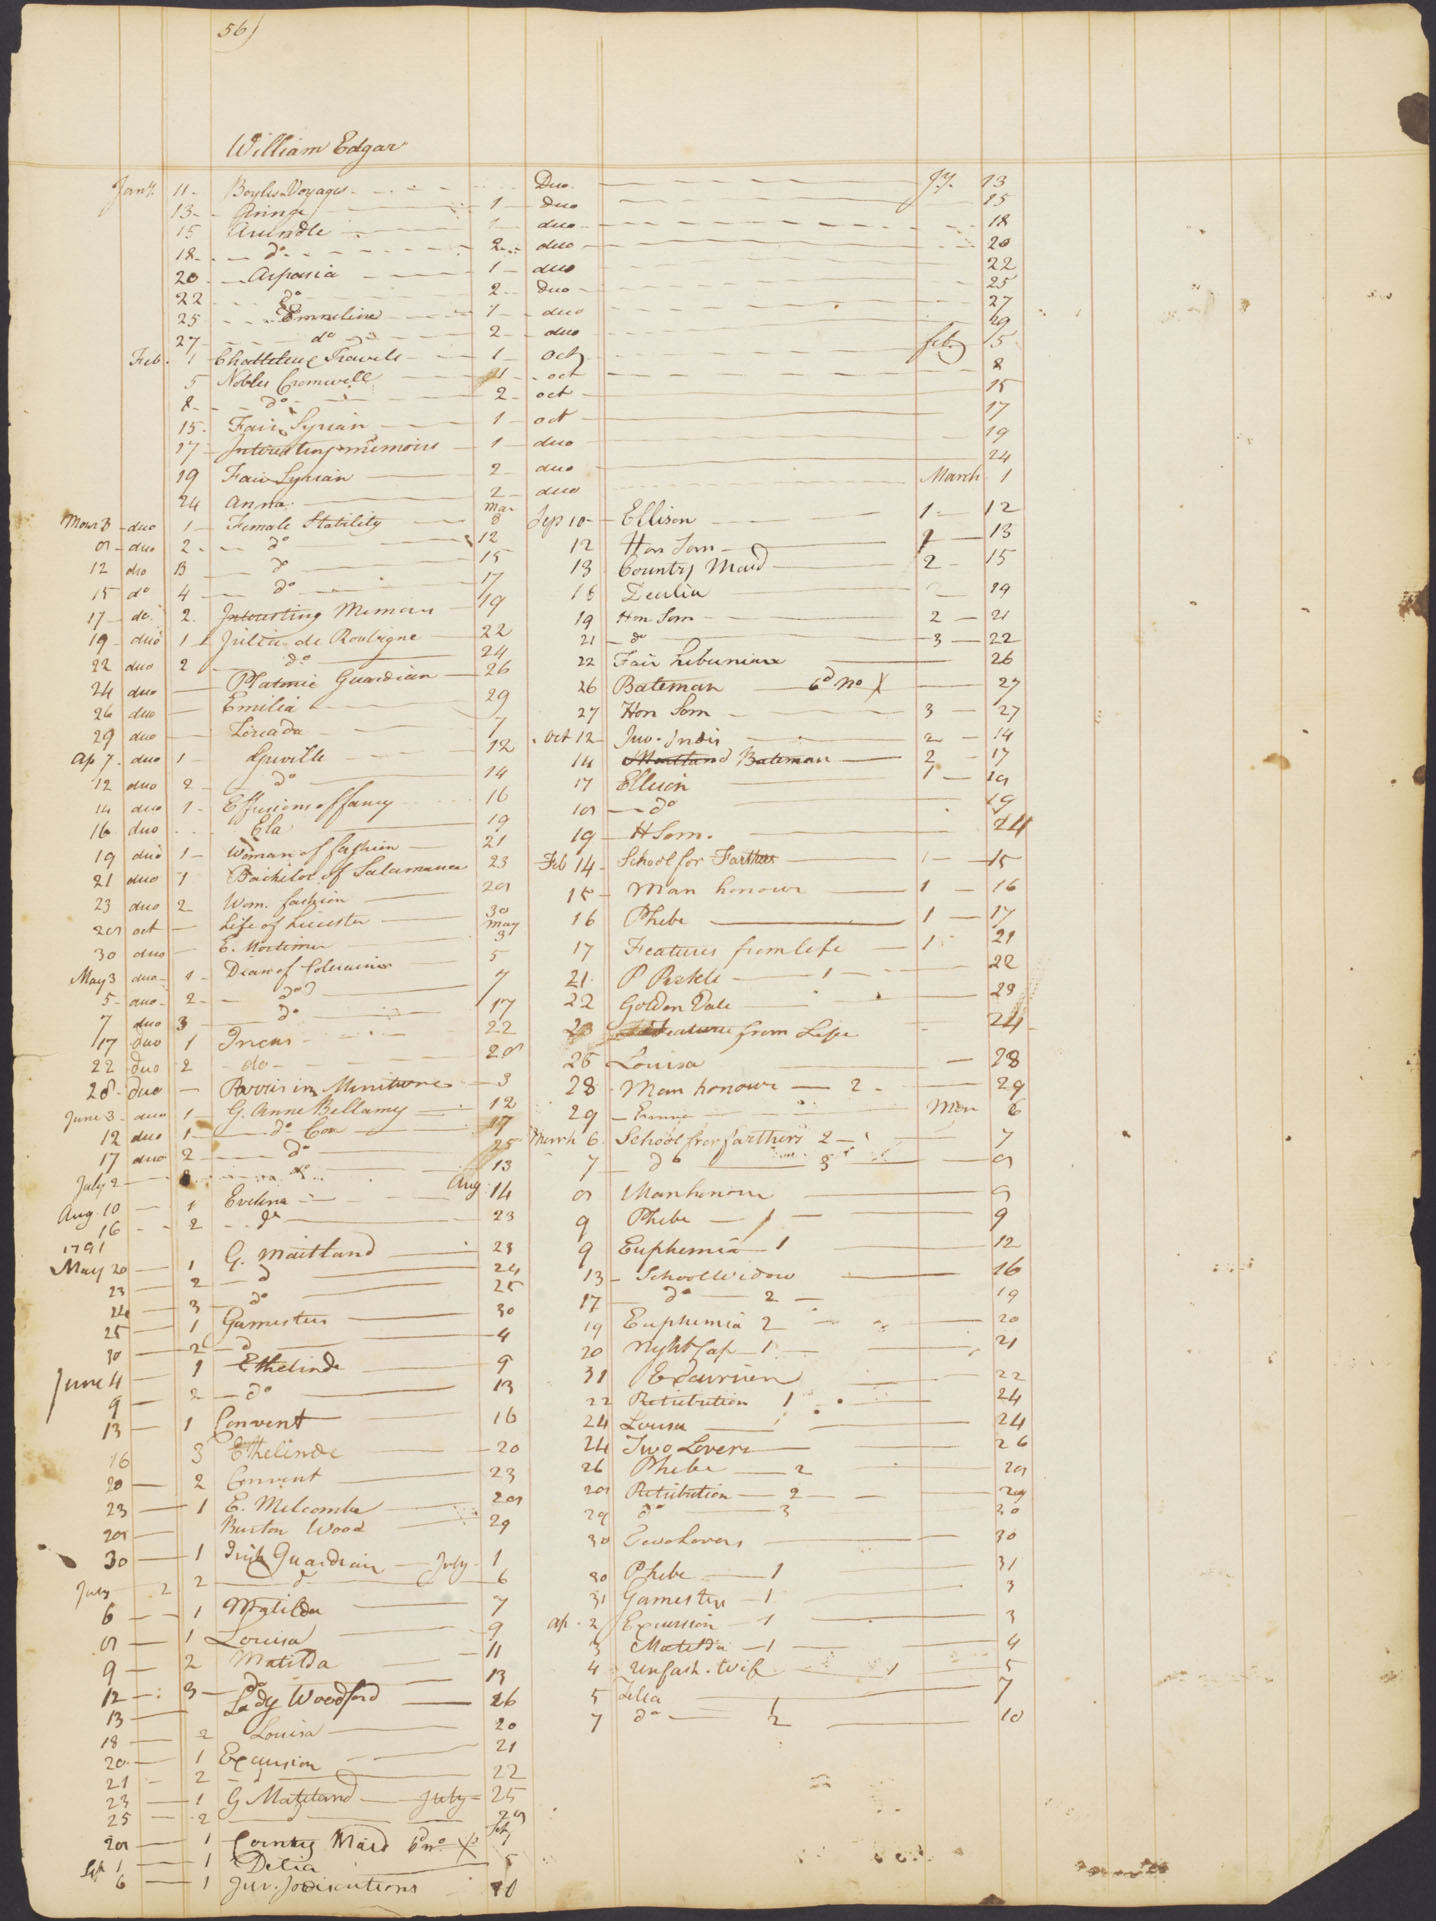 56)
William Edgar
Jany. 11 - Boyles Voyages - Duo. - Jy. 13
13 - - 1 - duo - 15
15 Arundle - 1 - duo - 18
18 - do - 2 - duo - 20
20 - Aspasia - 1 - duo - 22
22 - do - 2 - Duo - 25
25 - Emmeline - 1 - duo - 27
27 - do - 2 - duo - 29
Feb. 1 - Travels - 1 - Oct - feby 5
5 Nobles Cromwell - 1 - oct - 8
8 - do - 2 - oct - 15
15 - Fair Syrian - 1 - oct - 17
17 - Interesting memoirs - 1 - duo - 19
19 Fair Syrian - 2 - duo - 24
24 Anna - 2 - duo - March 1
Mar 3 - duo 1 - Female Stability - Mar 8
8 - duo 2 - do - 12
12 duo 3 - do - 15
15 do 4 - do - 17
17 - do 2 Interesting Memoirs - 19
19 - duo 1 Julia de Roubigne - 22
22 duo 2 - do - 24
24 duo - Platonic Guardian - 26
26 duo - Emilia - 29
29 duo - - 7
Ap 7. duo 1 - Greville - 12
12 duo 2 - do - 14
14 duo 1 - Effusions of fancy - 16
16 duo - Ela - 19
19 duo 1 - Woman of fashion - 21
21 duo 1 Bachelor of Salamanca 23
23 duo 2 Wom. fashion - 28
28 oct - Life of Leicester - 30
30 duo - E. Mortimer - May 3
May 3 duo - 1 - Dean of Coleraine - 5
5 - duo - 2 - do - 7
7 duo 3 - do - 17
17 duo 1 Incas - 22
22 duo 2 - do - 28
28 - duo - in Miniture - 3
June 3 - duo 1 - G. Anne Bellamy - 12
12 duo 1 - do - 17
17 duo 2 - do - 25
July 2 - 3 - do - 13
Aug. 10 - 1 Evelina - Aug 14
16 - 2 - do - 23
1791
May 20 - 1 G. Maitland - 23
23 - 2 - do - 24
24 - 3 - do - 25
25 - 1 Gamesters - 30
30 - 2 - do - 4
June 4 - 1 Ethelinde - 9
9 - 2 - do - 13
13 - 1 Convent - 16
16 3 Ethelinde - 20
20 - 2 Convent - 23
23 - 1 E. Melcombe - 28
28 - Burton Wood - 29
30 - 1 Irish Guardian - July - 1
July 2 2 - do - 6
6 - 1 Matilda - 7
8 - 1 Louisa - 9
9 - 2 Matilda - 11
12 - 3 - do - 13
13 - Lady Woodford - 26
18 - 2 Louisa - 20
20 - 1 Excursion - 21
21 - 2 - do - 22
23 - 1 G Maitland - July - 25
25 - 2 - 28
28 - 1 Country Maid 6d no X
Sep 1 - 1 Delia - 5
6 - 1 Juv. Indiscretions - 10
Sep 10 - Ellison - 1 - 12
12 Hon Som - 1 - 13
13 Country Maid - 2 - 15
15 - 2 - 19
19 Hon Som - 2 - 21
21 - do - 3 - 22
22 Fair - 26
26 Bateman - 6d no X - 27
27 Hon Som - 3 - 27
Oct 12 - Juv. Indis - 2 - 14
14 Maitland Bateman - 2 - 17
17 Ellison - 1 - 18
18 - do - 19
19 - H Som. - 24
Feb 14 - School for Farthers - 1 - 15
15 - Man honour - 1 - 16
16 Phebe - 1 - 17
17 Features from life - 1 - 21
21 P Pickle - 1 - 22
22 Golden Vale - 23
23 Feature from Life - 24
25 Louisa - 28
28 - Man honour - 2 - 29
29 - Emma - Mar 6
March 6 School for farthers 2 - 7
7 - do - 3 - 8
8 Man honour - 9
9 Phebe - 1 - 9
9 Euphemia - 1 - 12
13 - School Widow - 16
17 - do - 2 - 19
19 Euphemia 2 - 20
20 Nightcap - 1 - 21
31 Excursion - 22
22 Retribution 1 - 24
24 Louisa - 1 - 24
24 Two Lovers - 26
26 Phebe - 2 - 28
28 Retribution - 2 - 29
29 do - 3 - 30
30 Two Lovers - 30
30 Phebe - 1 - 31
31 Gamester - 1 - 3
ap. 2 Excursion - 1 - 3
3 Matilda - 1 - 4
4 Unfash. Wife - 1 - 5
5 Zelia - 1 - 7
7 do - 2 - 10